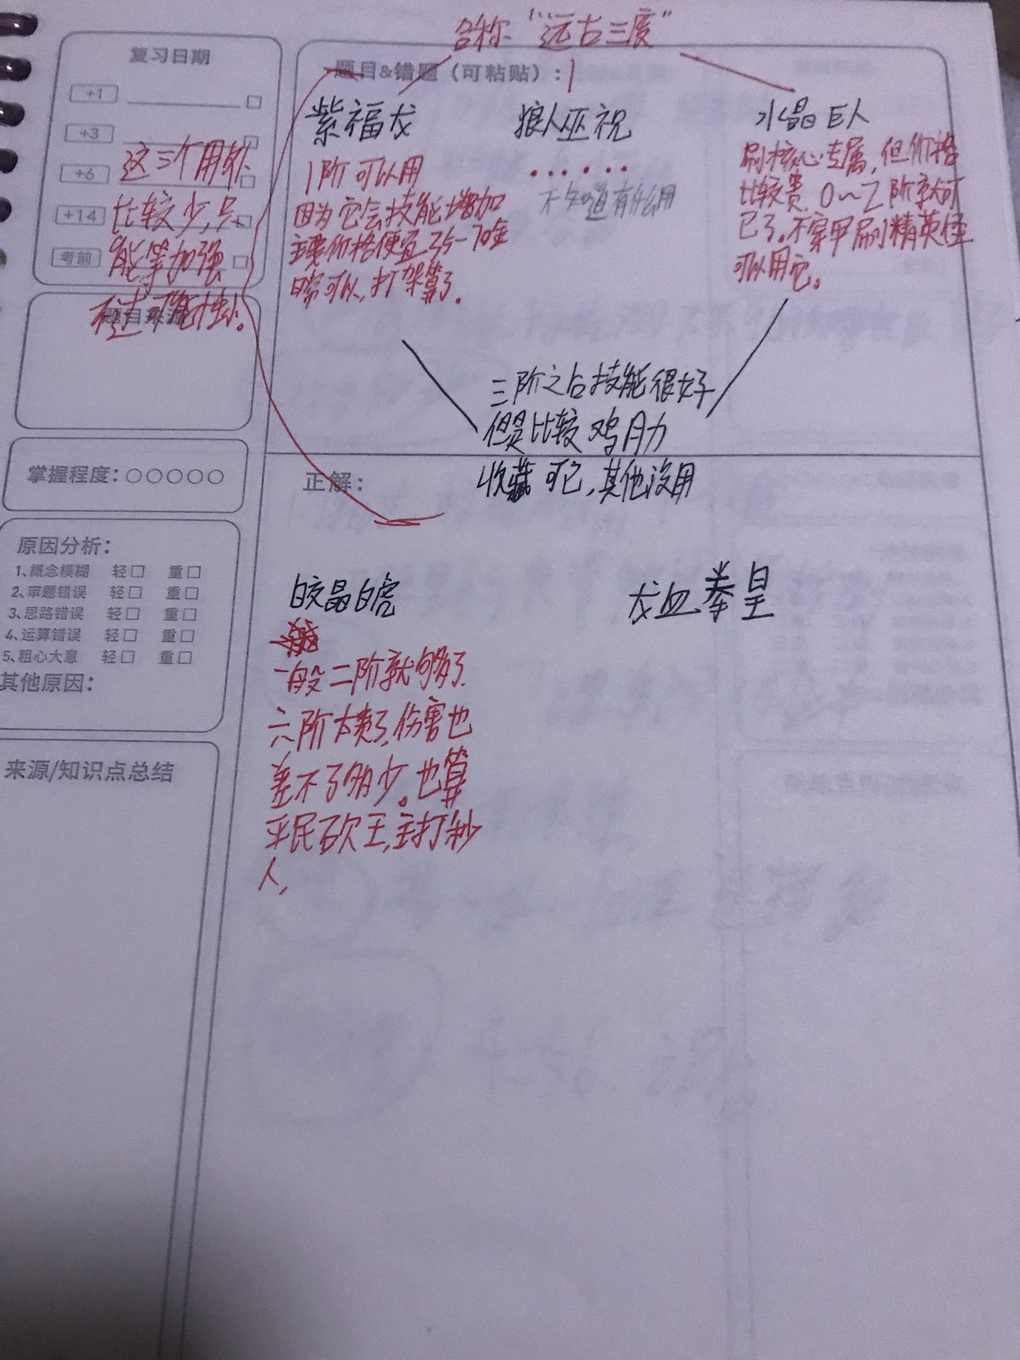 合称“远古三废”
复习日期
+1
+3
+6
+14
考前
这三个用处
比较少,只
能等加强
题目来源
掌握程度:○○○○○
原因分析:
1、概念模糊 轻□ 重□
2、审题错误 轻□ 重□
3、思路错误 轻□ 重□
4、运算错误 轻□ 重□
5、粗心大意 轻□ 重□
其他原因:
来源/知识点总结
题目&错题(可粘贴):
紫福龙
1阶可以用
因为它会技能增加
主要价格便宜35-70金
日常可以,打架算了。
狼人巫祝
······
不知道有什么用
水晶巨人
刷核心专属,但价格
比较贵,0~2阶就可
已了。不穿甲刷精英怪
可以用它。
三阶之后技能很好
但是比较鸡肋
收藏可已,其他没用
正解:
皎晶白虎
一般二阶就够了
六阶太贵了,伤害也
差不了多少。也算
平民砍王,主打秒
人,
龙血拳皇